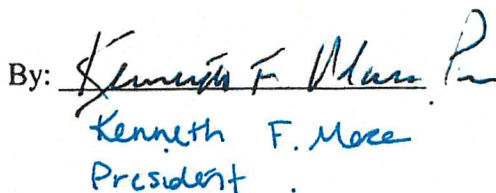 By: Kenneth F. Mose Pres
Kenneth F. Mose
President